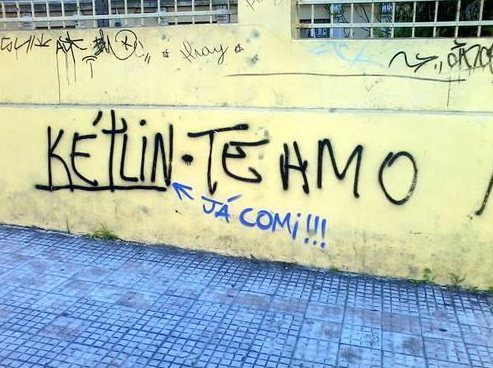 thay
KÉtLiN. TE AMO
JÁ COMi!!!